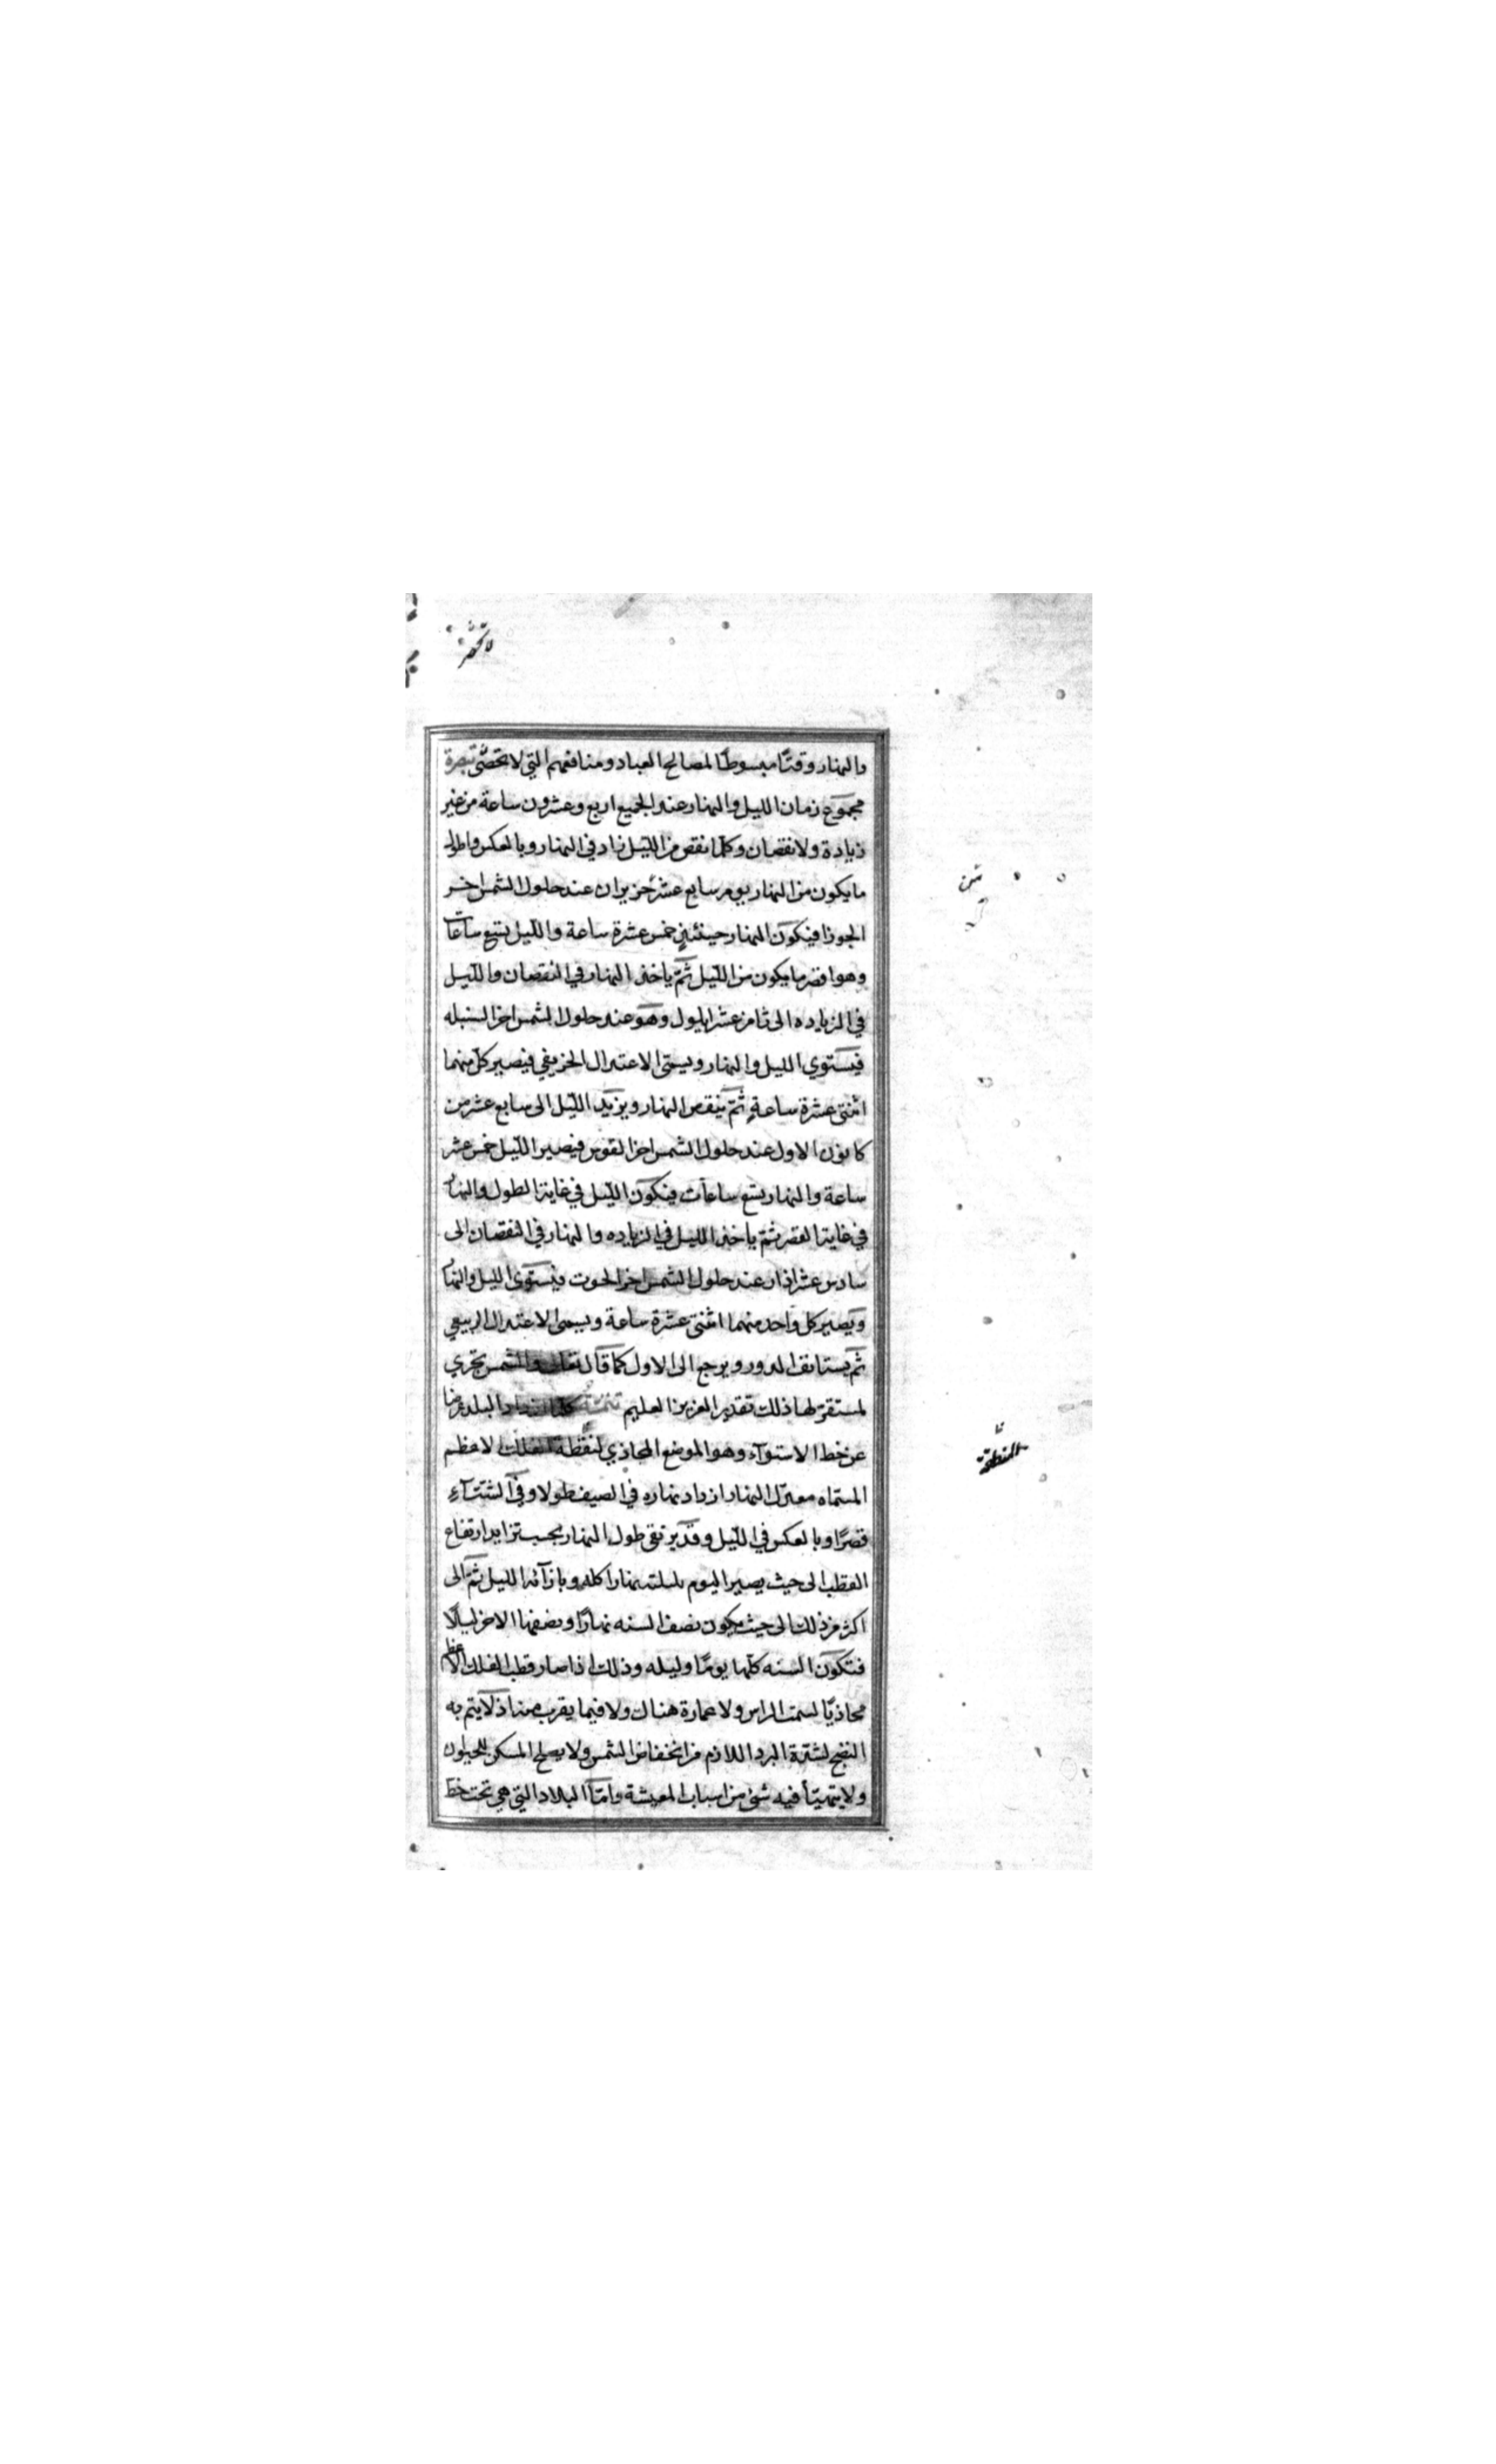 والنهار وقتًا مبسوطًا لمصالح العباد ومنافعهم التي لا تحصى تبصرة
مجموع زمان الليل والنهار عند الجميع اربع وعشرون ساعة من غير
زيادة ولا نقصان وكلما نقص من الليل زاد في النهار وبالعكس واطول
ما يكون من النهار يوم سابع عشر حزيران عند حلول الشمس اخر
الجوزا فيكون النهار حينئذٍ خمس عشرة ساعة والليل تسع ساعات
وهو اقصر ما يكون من الليل ثم ياخذ النهار في النقصان والليل
في الزياده الى ثامن عشر ايلول وهو عند حلول الشمس اخر السنبله
فيستوي الليل والنهار ويسمى الاعتدال الخريفي فيصير كل منهما
اثنتي عشرة ساعةٍ ثم ينقص النهار ويزيد الليل الى سابع عشر من
كانون الاول عند حلول الشمس اخر القوس فيصير الليل خمس عشر
ساعة والنهار تسع ساعات فيكون الليل في غاية الطول والنهار
في غاية القصر ثم ياخذ الليل في الزياده والنهار في النقصان الى
سادس عشر اذار عند حلول الشمس اخر الحوت فيستوى الليل والنهار
ويصير كل واحد منهما اثنتي عشرة ساعة ويسمى الاعتدال الربيعي
ثم يستانف الدور ويرجع الى الاول كما قال تعالى والشمس تجري
لمستقر لها ذلك تقدير العزيز العليم تتمة كلما ازداد البلد عرضا
عن خط الاستوآء وهو الموضع المحاذي لنقطة الفلك الاعظم
المسماه معدل النهار ازداد نهاره في الصيف طولا وفي الشتآءِ
قصرًا وبالعكس في الليل وقد يرتقى طول النهار بحسب تزايد ارتفاع
القطب الى حيث يصير اليوم بليلته نهارا كله وبازآئه الليل ثم الى
اكثر من ذلك الى حيث يكون نصف السنه نهارًا ونصفها الاخر ليلًا
فتكون السنه كلها يومًا وليله وذلك اذا صار قطب الفلك الاعظم
محاذيًا لسمت الراس ولا عمارة هناك ولا فيما يقرب منه اذ لا يتم به
النضج لشدة البرد اللازم من انخفاض الشمس ولا يصلح المسكن للحيوان
ولا يتهيأ فيه شئ من اسباب المعيشة واما البلاد التي هي تحت خط
المنطقة